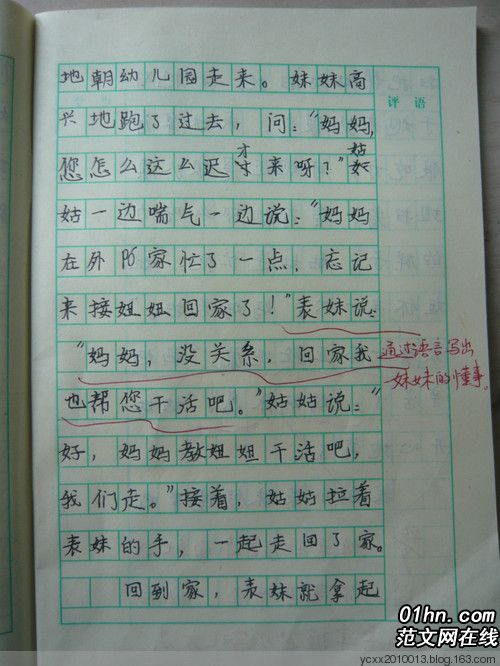 地朝幼儿园走来。妹妹高
评语
兴地跑了过去，问：“妈妈，
您怎么这么迟才来呀？”姑
姑一边喘气一边说：“妈妈
在外阝家忙了一点，忘记
来接妞妞回家了！”表妹说：
“妈妈，没关系，回家我
通过语言写出
妹妹的懂事。
也帮您干活吧。”姑姑说：“
好，妈妈教妞妞干活吧，
我们走。”接着，姑姑拉着
表妹的手，一起走回了家。
回到家，表妹就拿起
01hn.com
范文网在线
ycxx2010013.blog.163.com